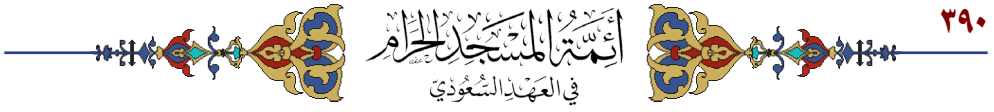 ٣٩٠
أَئِمَّةُ المَسْجِدِ الحَرَامِ
فِي العَهْدِ السُّعُودِيّ